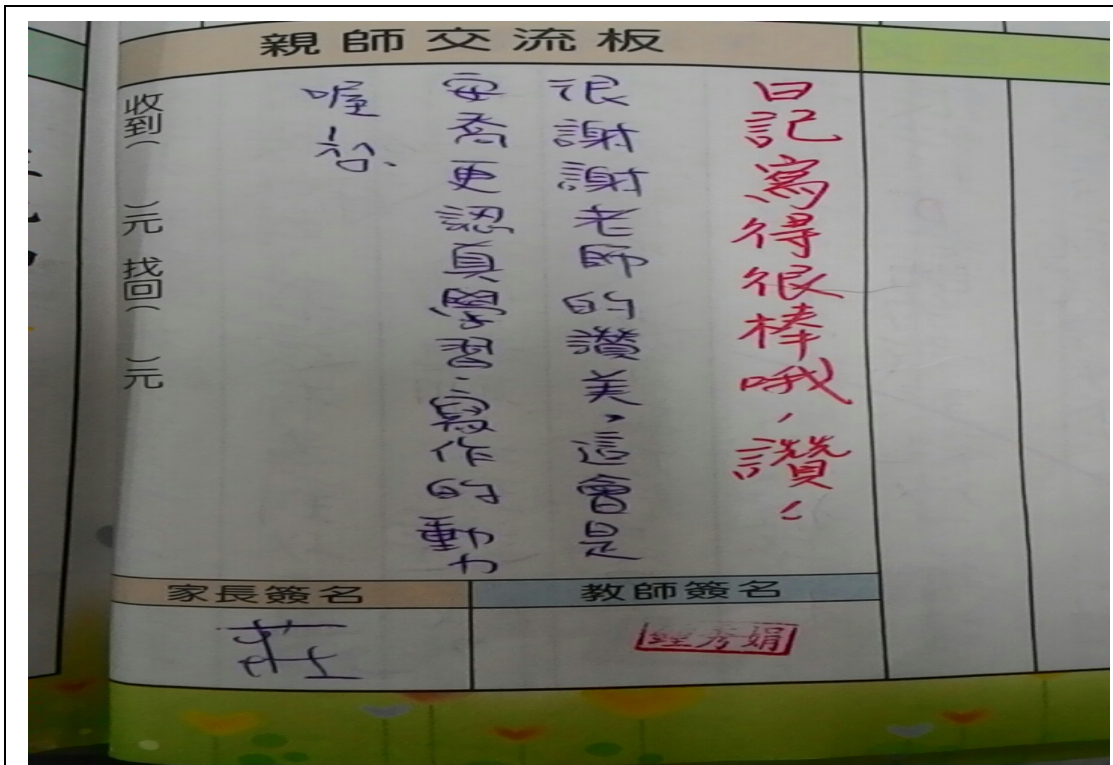 親師交流板
日記寫得很棒哦，讚！
很謝謝老師的讚美，這會是
安喬更認真學習、寫作的動力
喔
收到（ ）元 找回（ ）元
家長簽名
教師簽名
莊
秀娟